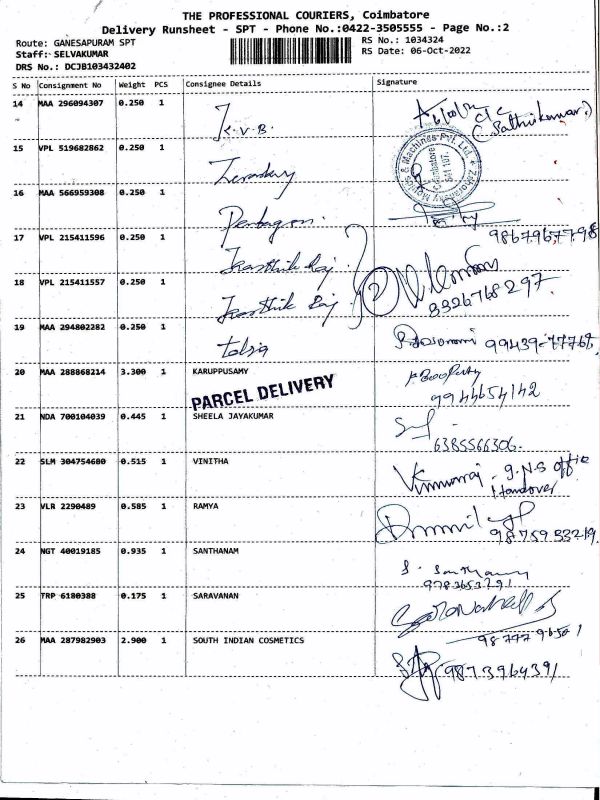 THE PROFESSIONAL COURIERS, Coimbatore
Delivery Runsheet - SPT - Phone No.:0422-3505555 - Page No.:2
Route: GANESAPURAM SPT
RS No.: 1034324
Staff: SELVAKUMAR
RS Date: 06-Oct-2022
DRS No.: DCJB103432402
S No Consignment No Weight PCS Consignee Details Signature
14 MAA 296094307 0.250 1 K.V.B.
15 VPL 519682862 0.250 1
16 MAA 566959308 0.250 1 Pentagon
9867967798
17 VPL 215411596 0.250 1 Kasthik Raj
18 VPL 215411557 0.250 1 Kasthik Raj 2
3326768297
19 MAA 294802282 0.250 1 99439-77768
20 MAA 288868214 3.300 1 KARUPPUSAMY
9944654142
PARCEL DELIVERY
21 NDA 700104039 0.445 1 SHEELA JAYAKUMAR
6385566306
22 SLM 304754680 0.515 1 VINITHA
G.N.S office
Handover
23 VLR 2290489 0.585 1 RAMYA
9875933219
24 NGT 40019185 0.935 1 SANTHANAM
S. Santhanam
9783653291
25 TRP 6180388 0.175 1 SARAVANAN
26 MAA 287982903 2.900 1 SOUTH INDIAN COSMETICS
9873964391